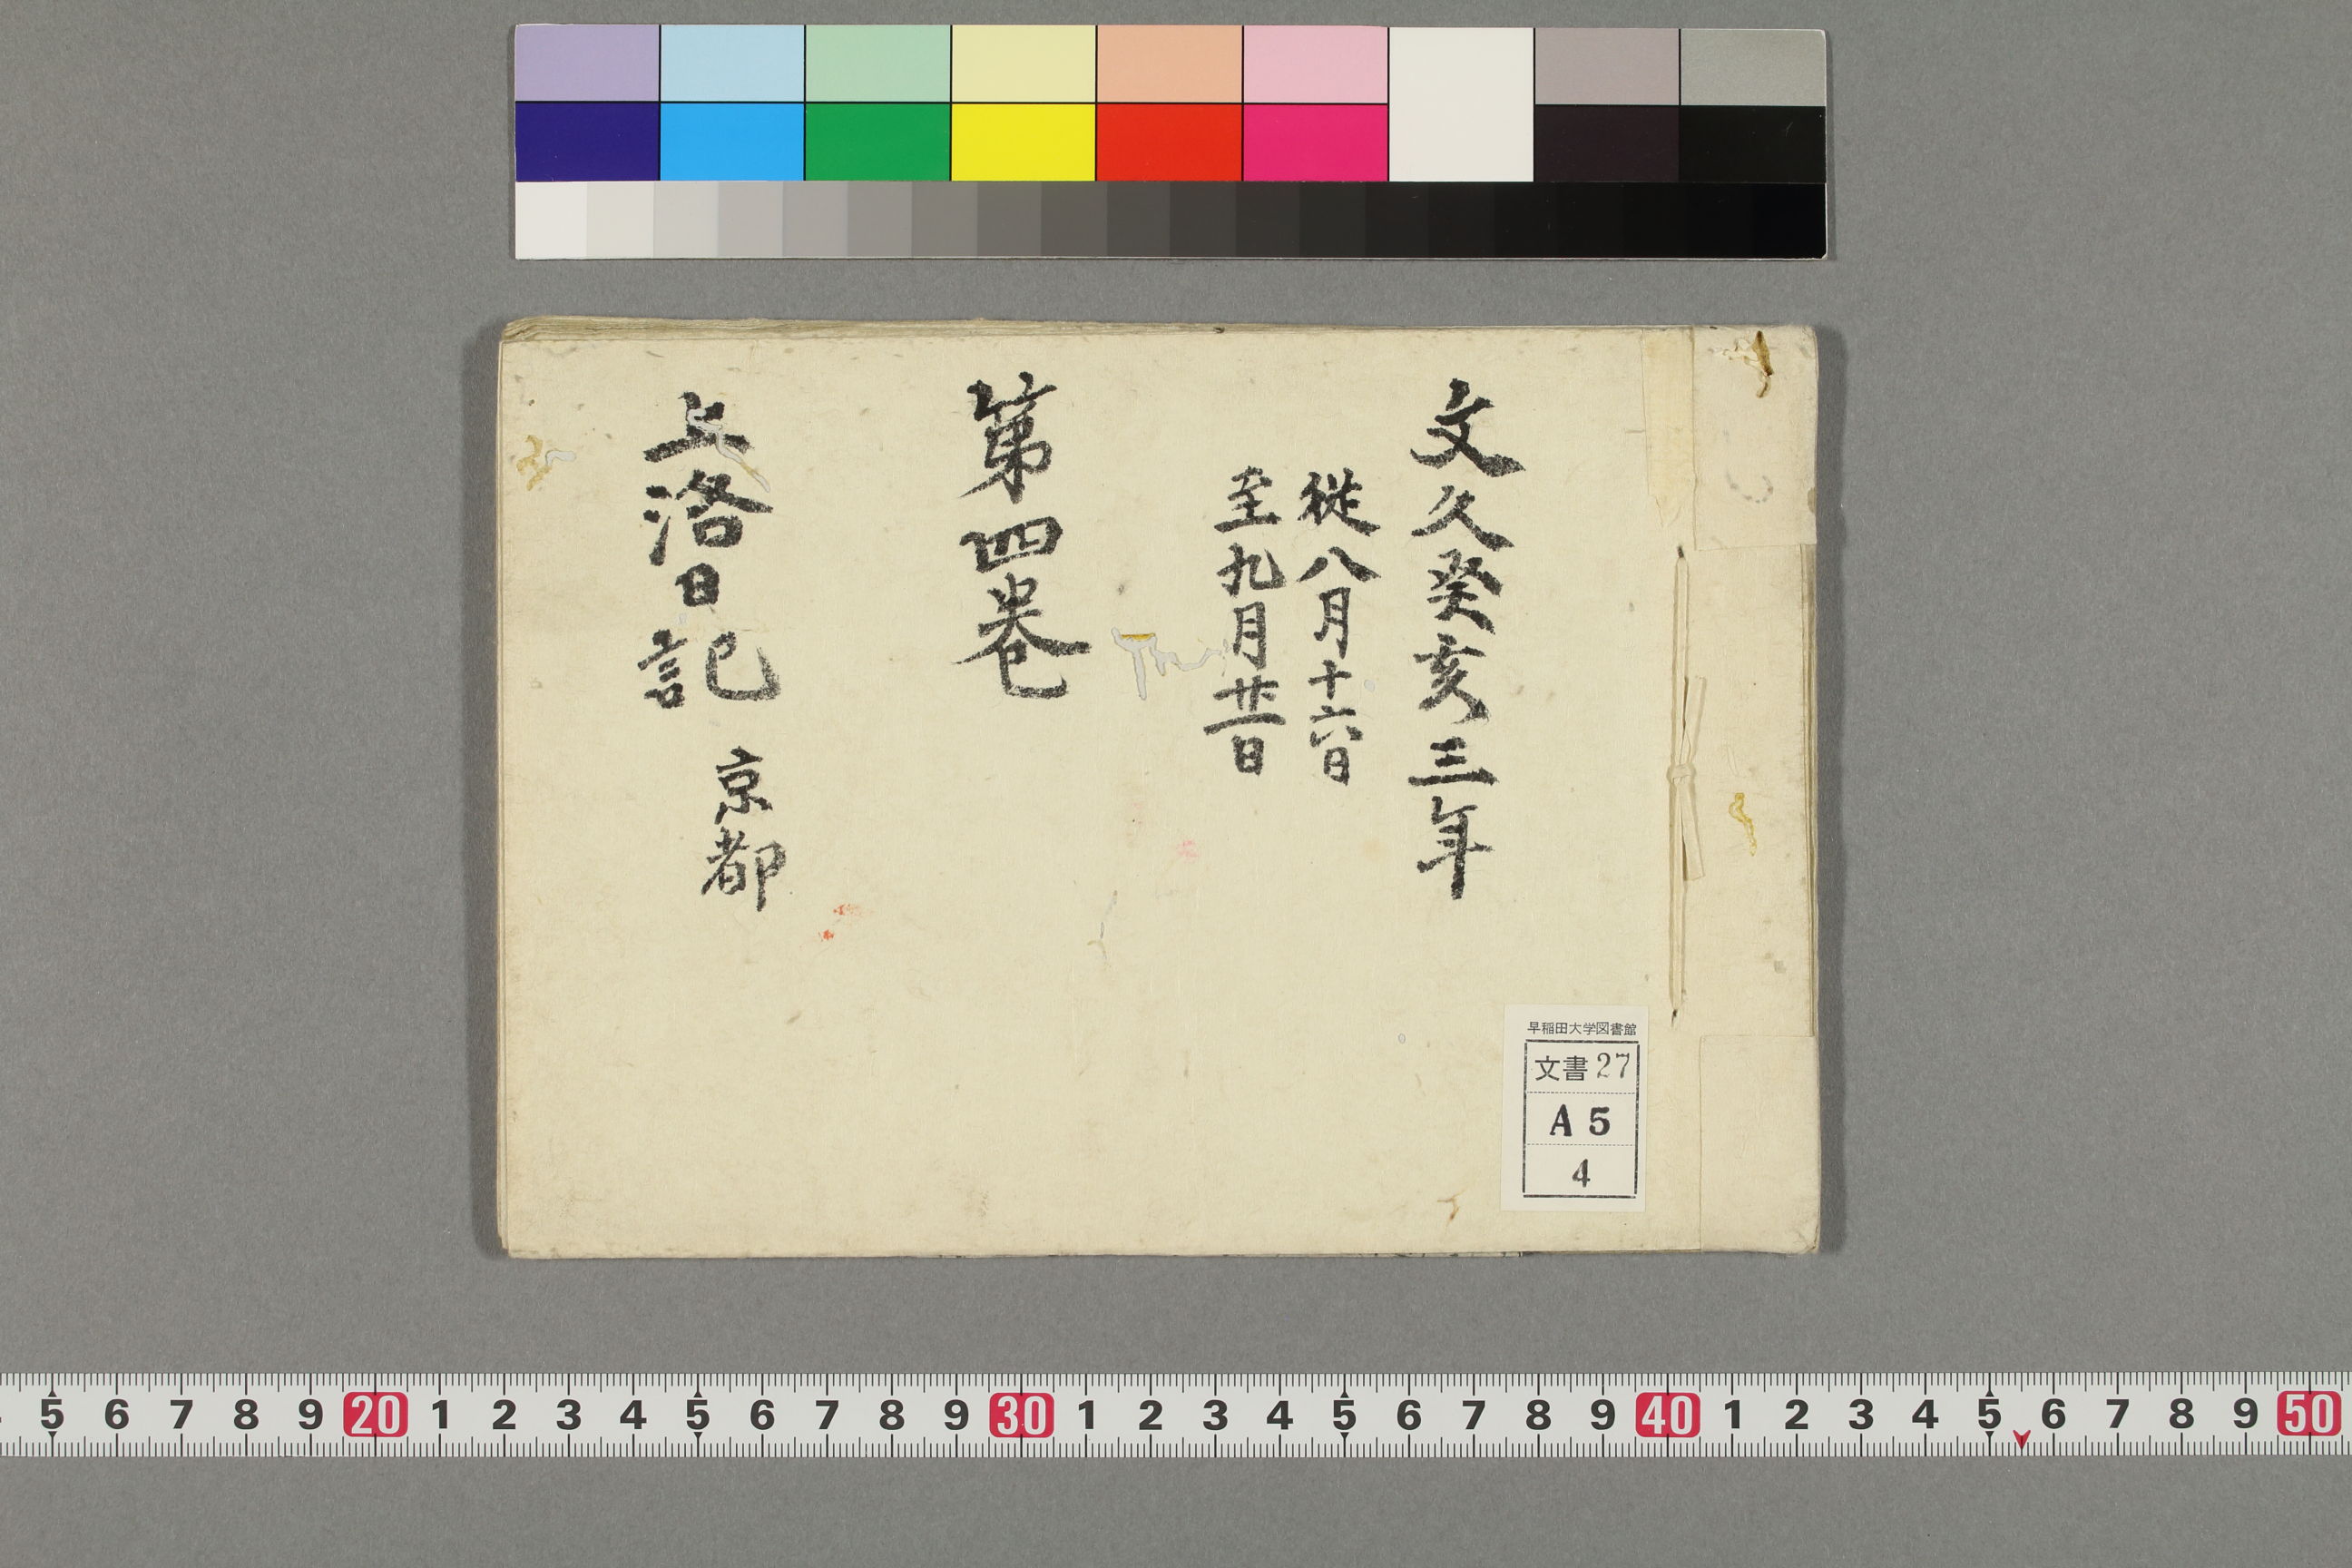 文久癸亥三年
従八月十六日
至九月廿一日
第四巻
上洛日記 京都
早稲田大学図書館
文書 27
A 5
4
5 6 7 8 9 20 1 2 3 4 5 6 7 8 9 30 1 2 3 4 5 6 7 8 9 40 1 2 3 4 5 6 7 8 9 50